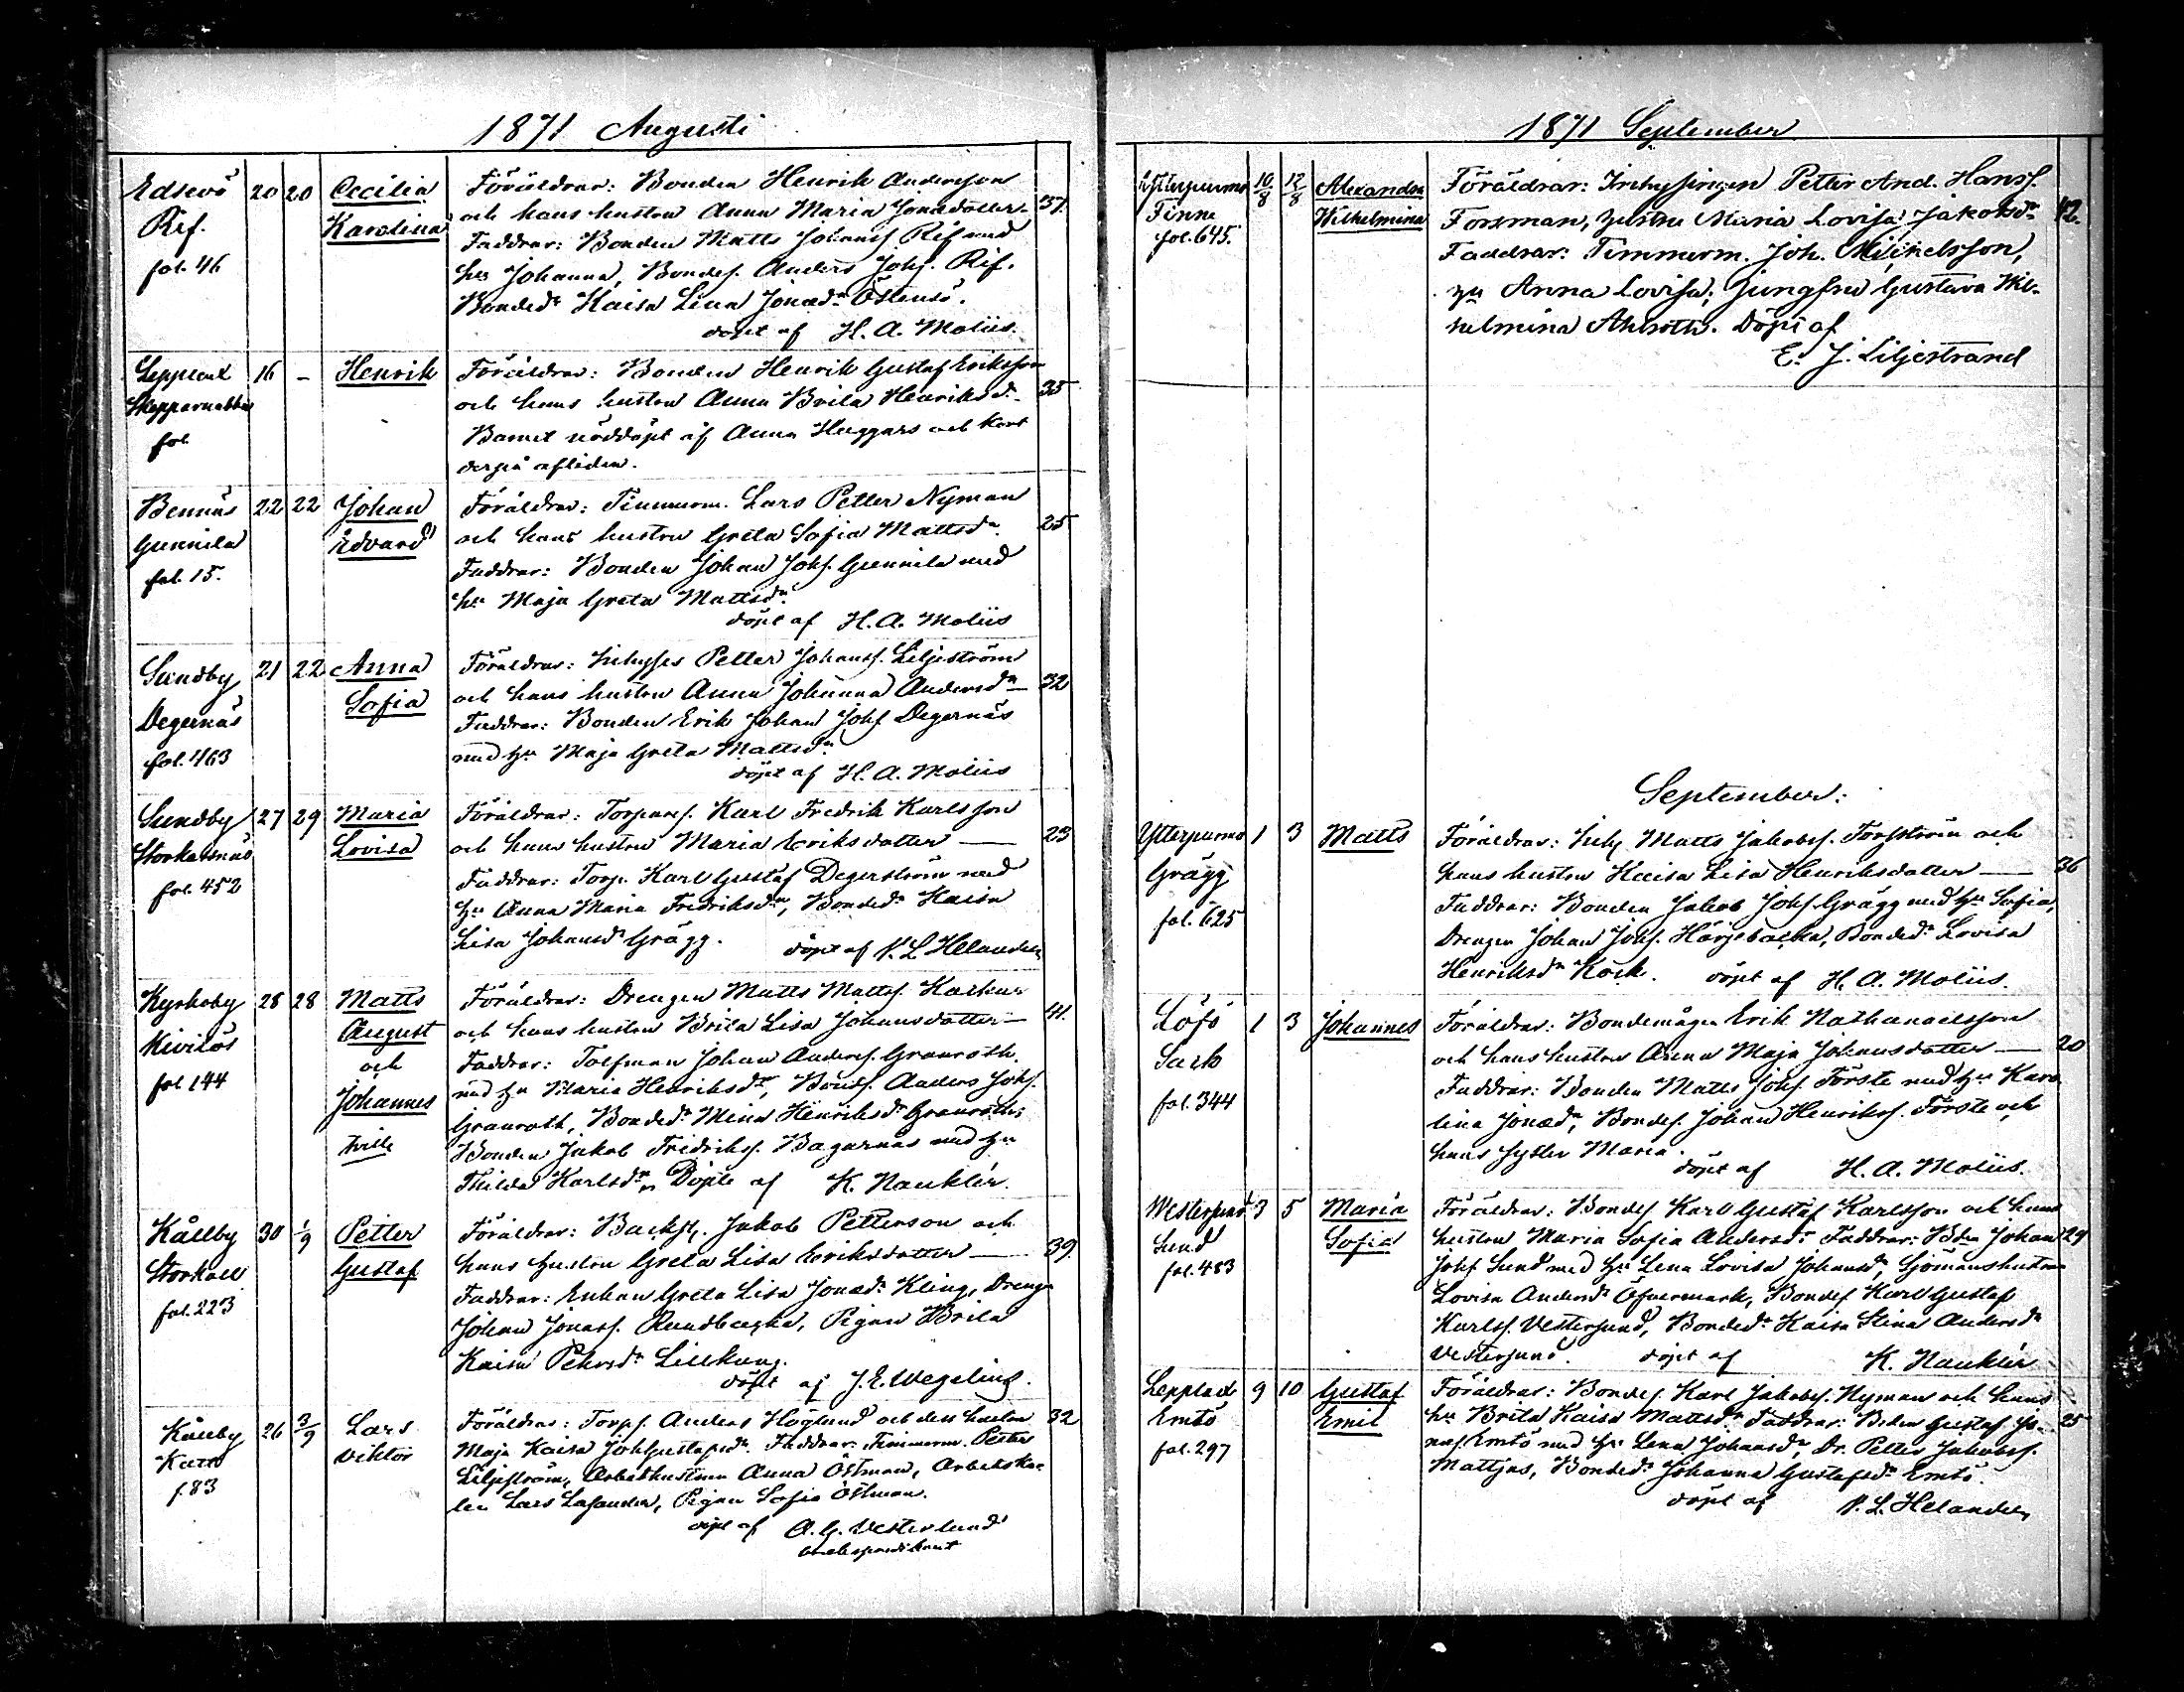 1871 Augusti
Edsevö 20 20 Cecilia Föräldrar: Bonden Henrik Andersson
Rif. Karolina och hans hustru Anna Maria Jonædotter 37.
fol. 46 Faddrar: Bonden Matts Johanss. Rif med
hu Johanna, Bondes. Anders Johs. Rif.
Bonded. Kaisa Lena Jonæd. Östensö.
döpt af H. A. Moliis.
Lepplax 16 - Henrik Föräldrar: Bonden Henrik Gustaf Eriksson
Skepparnabba och hans hustru Anna Brita Henriksd. 35
fol. Barnet nöddöpt af Anna Haggars och kort
derpå afliden.
Bennäs 22 22 Johan Föräldrar: Timmerm. Lars Petter Nyman
Gunnila Edvard och hans hustru Greta Sofia Mattsdr 25
fol. 15. Faddrar: Bonden Johan Johs. Gunnila med
hu Maja Greta Mattsdr
döpt af H. A. Moliis
Sundby 21 22 Anna Föräldrar: Inhyses Petter Johanss. Liljeström
Degernäs Sofia och hans hustru Anna Johanna Andersdr 32
fol. 463 Faddrar: Bonden Erik Johan Johs Degernäs
med hu Maja Greta Mattsdr
döpt af H. A. Moliis
Sundby 27 29 Maria Föräldrar: Torpares. Karl Fredrik Karlsson
Storkasnäs Lovisa och hans hustru Maria Eriksdotter 23
fol. 452 Faddrar: Torp. Karl Gustaf Degerström med
hu Anna Maria Fredriksdr, Bonded. Kaisa
Lisa Johansdr Grägg. döpt af P. L. Helander
Kyrkoby 28 28 Matts Föräldrar: Drengen Matts Mattss.
Kivilös August och hans hustru Brita Lisa Johansdotter 41.
fol 144 och Faddrar: Tolfman Johan Anderss. Granroth
Johannes med hu Maria Henriksdr, Bonds. Anders Johs.
tville Granroth, Bondedr Mina Henriksdr Granroth;
Bonden Jakob Fredrikss. Bagarnas med hu
Thilda Karlsdr. Döpte af K. Nauklér.
Kållby 30 1/9 Petter Föräldrar: Jakob Petterson och
Storkall Gustaf hans hustru Greta Lisa Eriksdotter 39.
fol. 223 Faddrar: Enkan Greta Lisa Jonædr Kling, Dreng
Johan Jonass. Rundbacka, Pigan Brita
Kaisa Pehrsdr Lillkung.
döpt af J. E. Wegelius.
Kållby 26 3/9 Lars Föräldrar: Torps. Anders Höglund och dess hustru 32
Viktor Maja Kaisa Joh:Gustafsdr. Faddrar: Timmerm. Petter
f. 83 Liljeström, Arbetshustrun Anna Östman, Arbetska-
len Lars Lasander, Pigan Sofia Östman.
döpt af A. G. Vesterlund
1871 September
Ytterpurmo 10/8 12/8 Alexandra Föräldrar: Inhysingen Petter And. Hanss.
Finne Wilhelmina Forsman, hustru Maria Lovisa Jakobsdr 42.
fol. 645. Faddrar: Timmerm. Joh. Mickelsson,
hu Anna Lovisa; Jungfru Gustava Wil-
helmina Ahlroth. Döpt af
E. J. Liljestrand
September:
Ytterpurmo 1 3 Matts Föräldrar: Inh. Matts Jakobss. Forsström och
Grägg hans hustru Kaisa Lisa Henriksdotter 36
fol. 625 Faddrar: Bonden Jakob Johs. Grägg med hu Sofia,
Drengen Johan Johs. Härjebacka, Bondedr Lovisa
Henriksdr Kock. döpt af H. A. Moliis.
Löfö 1 3 Johannes Föräldrar: Bondemågen Erik Nathanaelsson
och hans hustru Anna Maja Johansdotter 20
fol. 344 Faddrar: Bonden Matts Johs. Förste med hu Karo
lina Jonædr, Bondes. Johan Henrikss. Förste och
hans syster Maria.
döpt af H. A. Moliis.
Westersund 3 5 Maria Föräldrar: Bondes Karl Gustaf Karlsson och hans
Sund Sofia hustru Maria Sofia Andersdr Faddrar: Bden Johan 29
fol. 483 Johs Sund med hu Lena Lovisa Johansdr, Sjömanshustrun
Lovisa Andersdr Öfvermark, Bondes Karl Gustaf
Karlss. Vestersund, Bondedr Kaisa Stina Andersdr
Vestersund. döpt af K. Nauklér
Lepplax 9 10 Gustaf Föräldrar: Bondes. Karl Jakobss. Nyman och hans
Emtö Emil hu Brita Kaisa Mattsdr Faddrar: Bden Gustaf Jo- 25
fol. 297 nass Emtö med hu Lena Johansdr, Dr. Petter Jakobss.
Mattjus, Bondedr Johanna Gustafsdr Emtö.
döpt af P. L. Helander